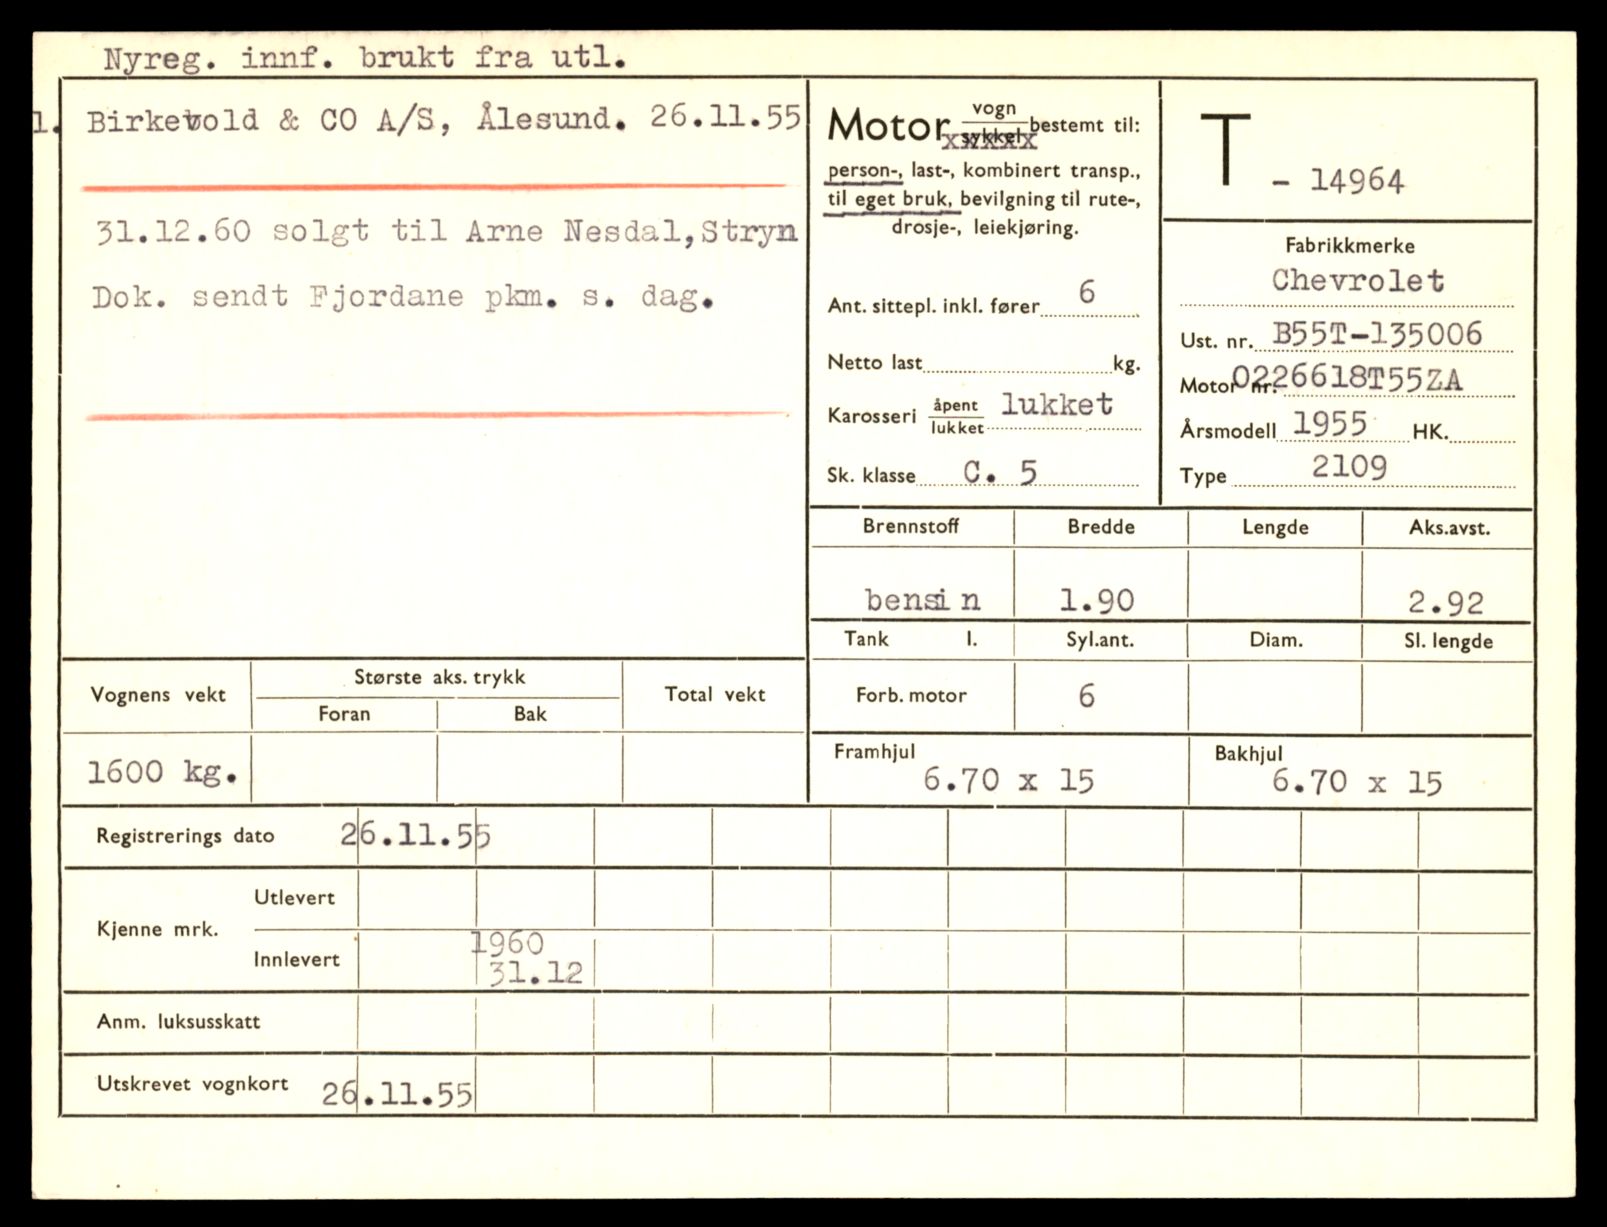 Nyreg. innf. brukt fra utl.
1. Birkevold & CO A/S, Ålesund. 26.11.55
31.12.60 solgt til Arne Nesdal,Stryn
Dok. sendt Fjordane pkm. s. dag.
Motor vogn sykkel bestemt til:
person-, last-, kombinert transp.,
til eget bruk, bevilgning til rute-,
drosje-, leiekjøring.
Ant. sittepl. inkl. fører 6
Netto last kg.
Karosseri åpent lukket lukket
Sk. klasse C. 5
T - 14964
Fabrikkmerke
Chevrolet
Ust. nr. B55T-135006
Motor nr. 0226618T55ZA
Årsmodell 1955 HK.
Type 2109
Brennstoff Bredde Lengde Aks.avst.
bensin 1.90 2.92
Tank l. Syl.ant. Diam. Sl. lengde
Forb. motor 6
Framhjul Bakhjul
6.70 x 15 6.70 x 15
Vognens vekt Største aks. trykk Total vekt
Foran Bak
1600 kg.
Registrerings dato 26.11.55
Kjenne mrk. Utlevert
Innlevert 1960
31.12
Anm. luksusskatt
Utskrevet vognkort 26.11.55